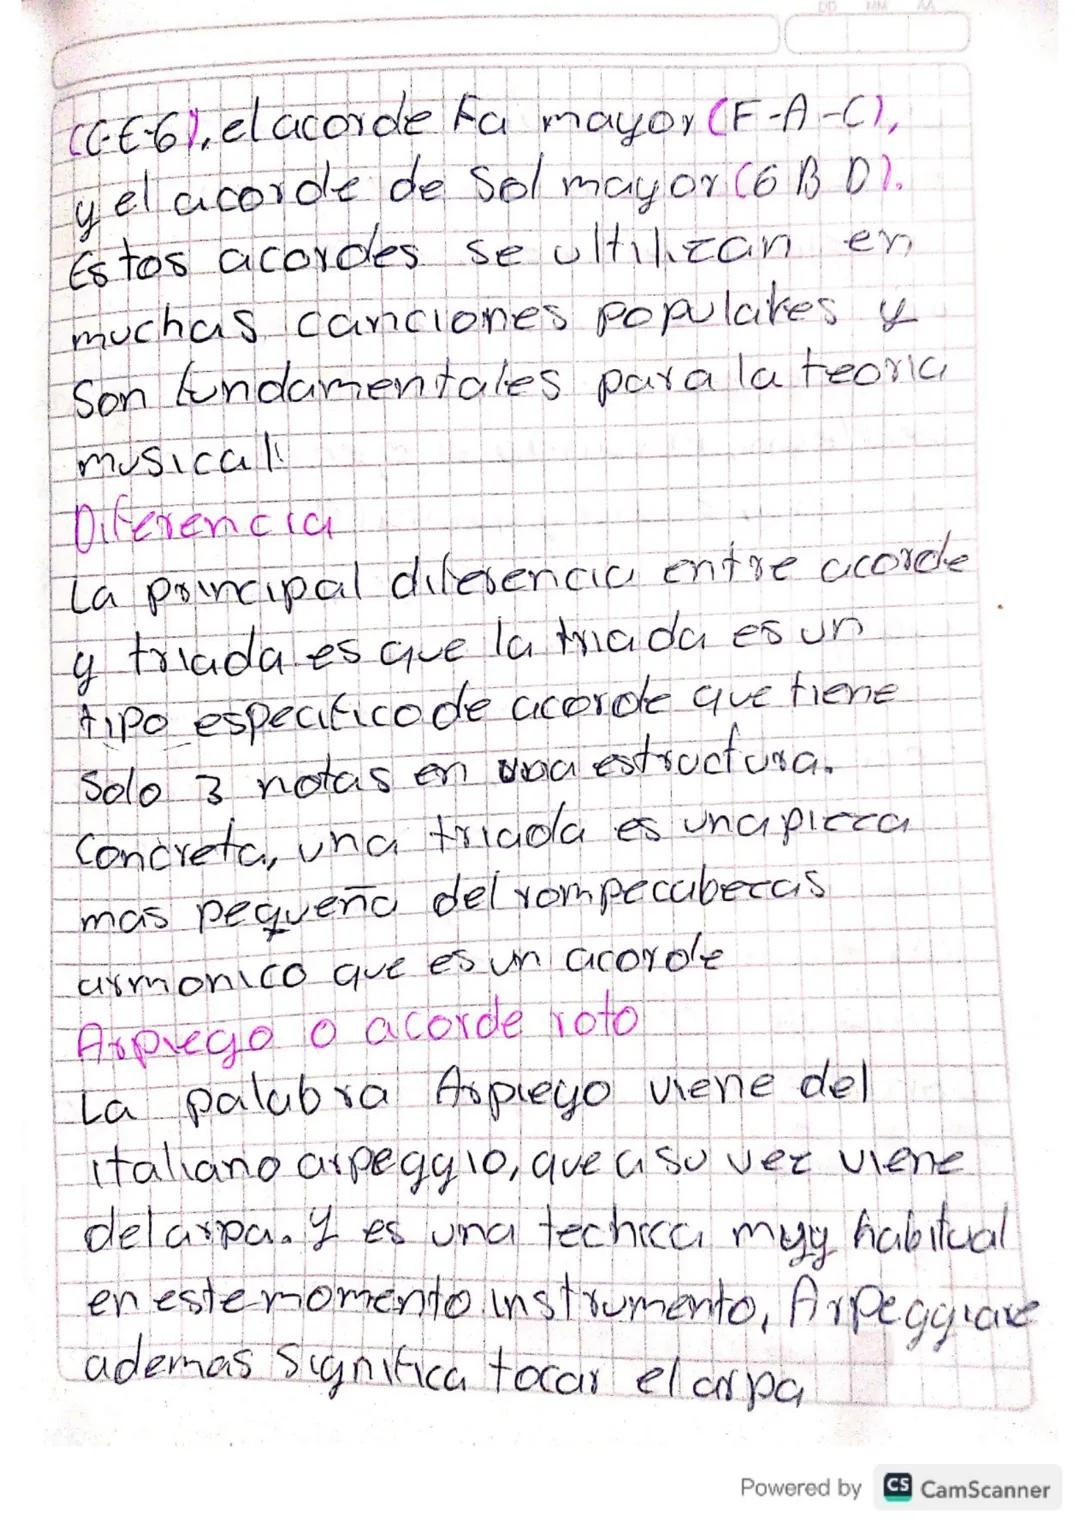 DD MM AA
(C-E-G), el acorde Fa mayor (F-A-C),
y el acorde de Sol mayor (G B D).
Estos acordes se ultilizan en
muchas canciones populares y
Son fundamentales para la teoria
musical.
Diferencia
La principal diferencia entre acorde
y triada es que la triada es un
tipo especifico de acorde que tiene
Solo 3 notas en una estructura.
Concreta, una triada es una pieza
mas pequeña del rompecabezas
armonico que es un acorde
Arpiego o acorde roto
La palabra Arpiego viene del
italiano arpeggio, que a su vez viene
del arpa. Y es una technica muy habitual
en este momento instrumento, Arpeggiare
ademas Significa tocar el arpa
Powered by CS CamScanner